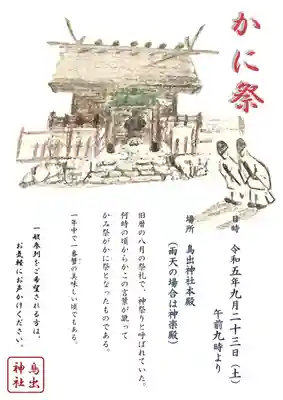 かに祭
日時 令和五年九月二十三日(土)
午前九時より
場所 鳥出神社本殿
(雨天の場合は神楽殿)
旧暦の八月の祭礼で、神祭りと呼ばれていた。
何時の頃からかこの言葉が訛って
かみ祭がかに祭となったものである。
一年中で一番蟹の美味しい頃でもある。
一般参列をご希望される方は、
お気軽にお声かけください。
鳥出
神社